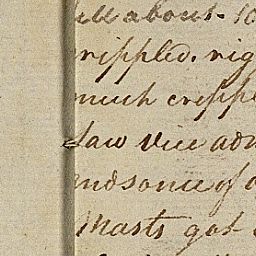 about - 10
crippled. rig
much crippl
Saw Vice adm
and some of
Masts got